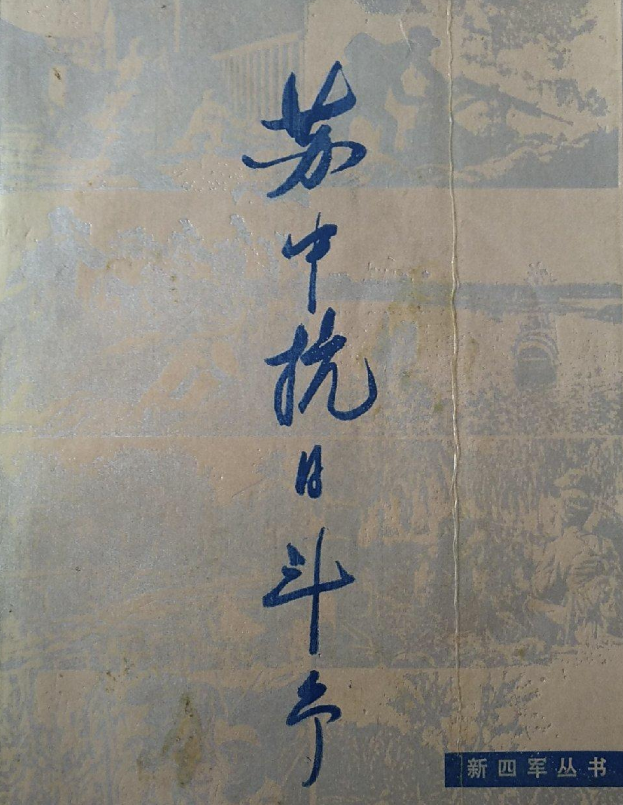 苏中抗日斗争
新四军丛书